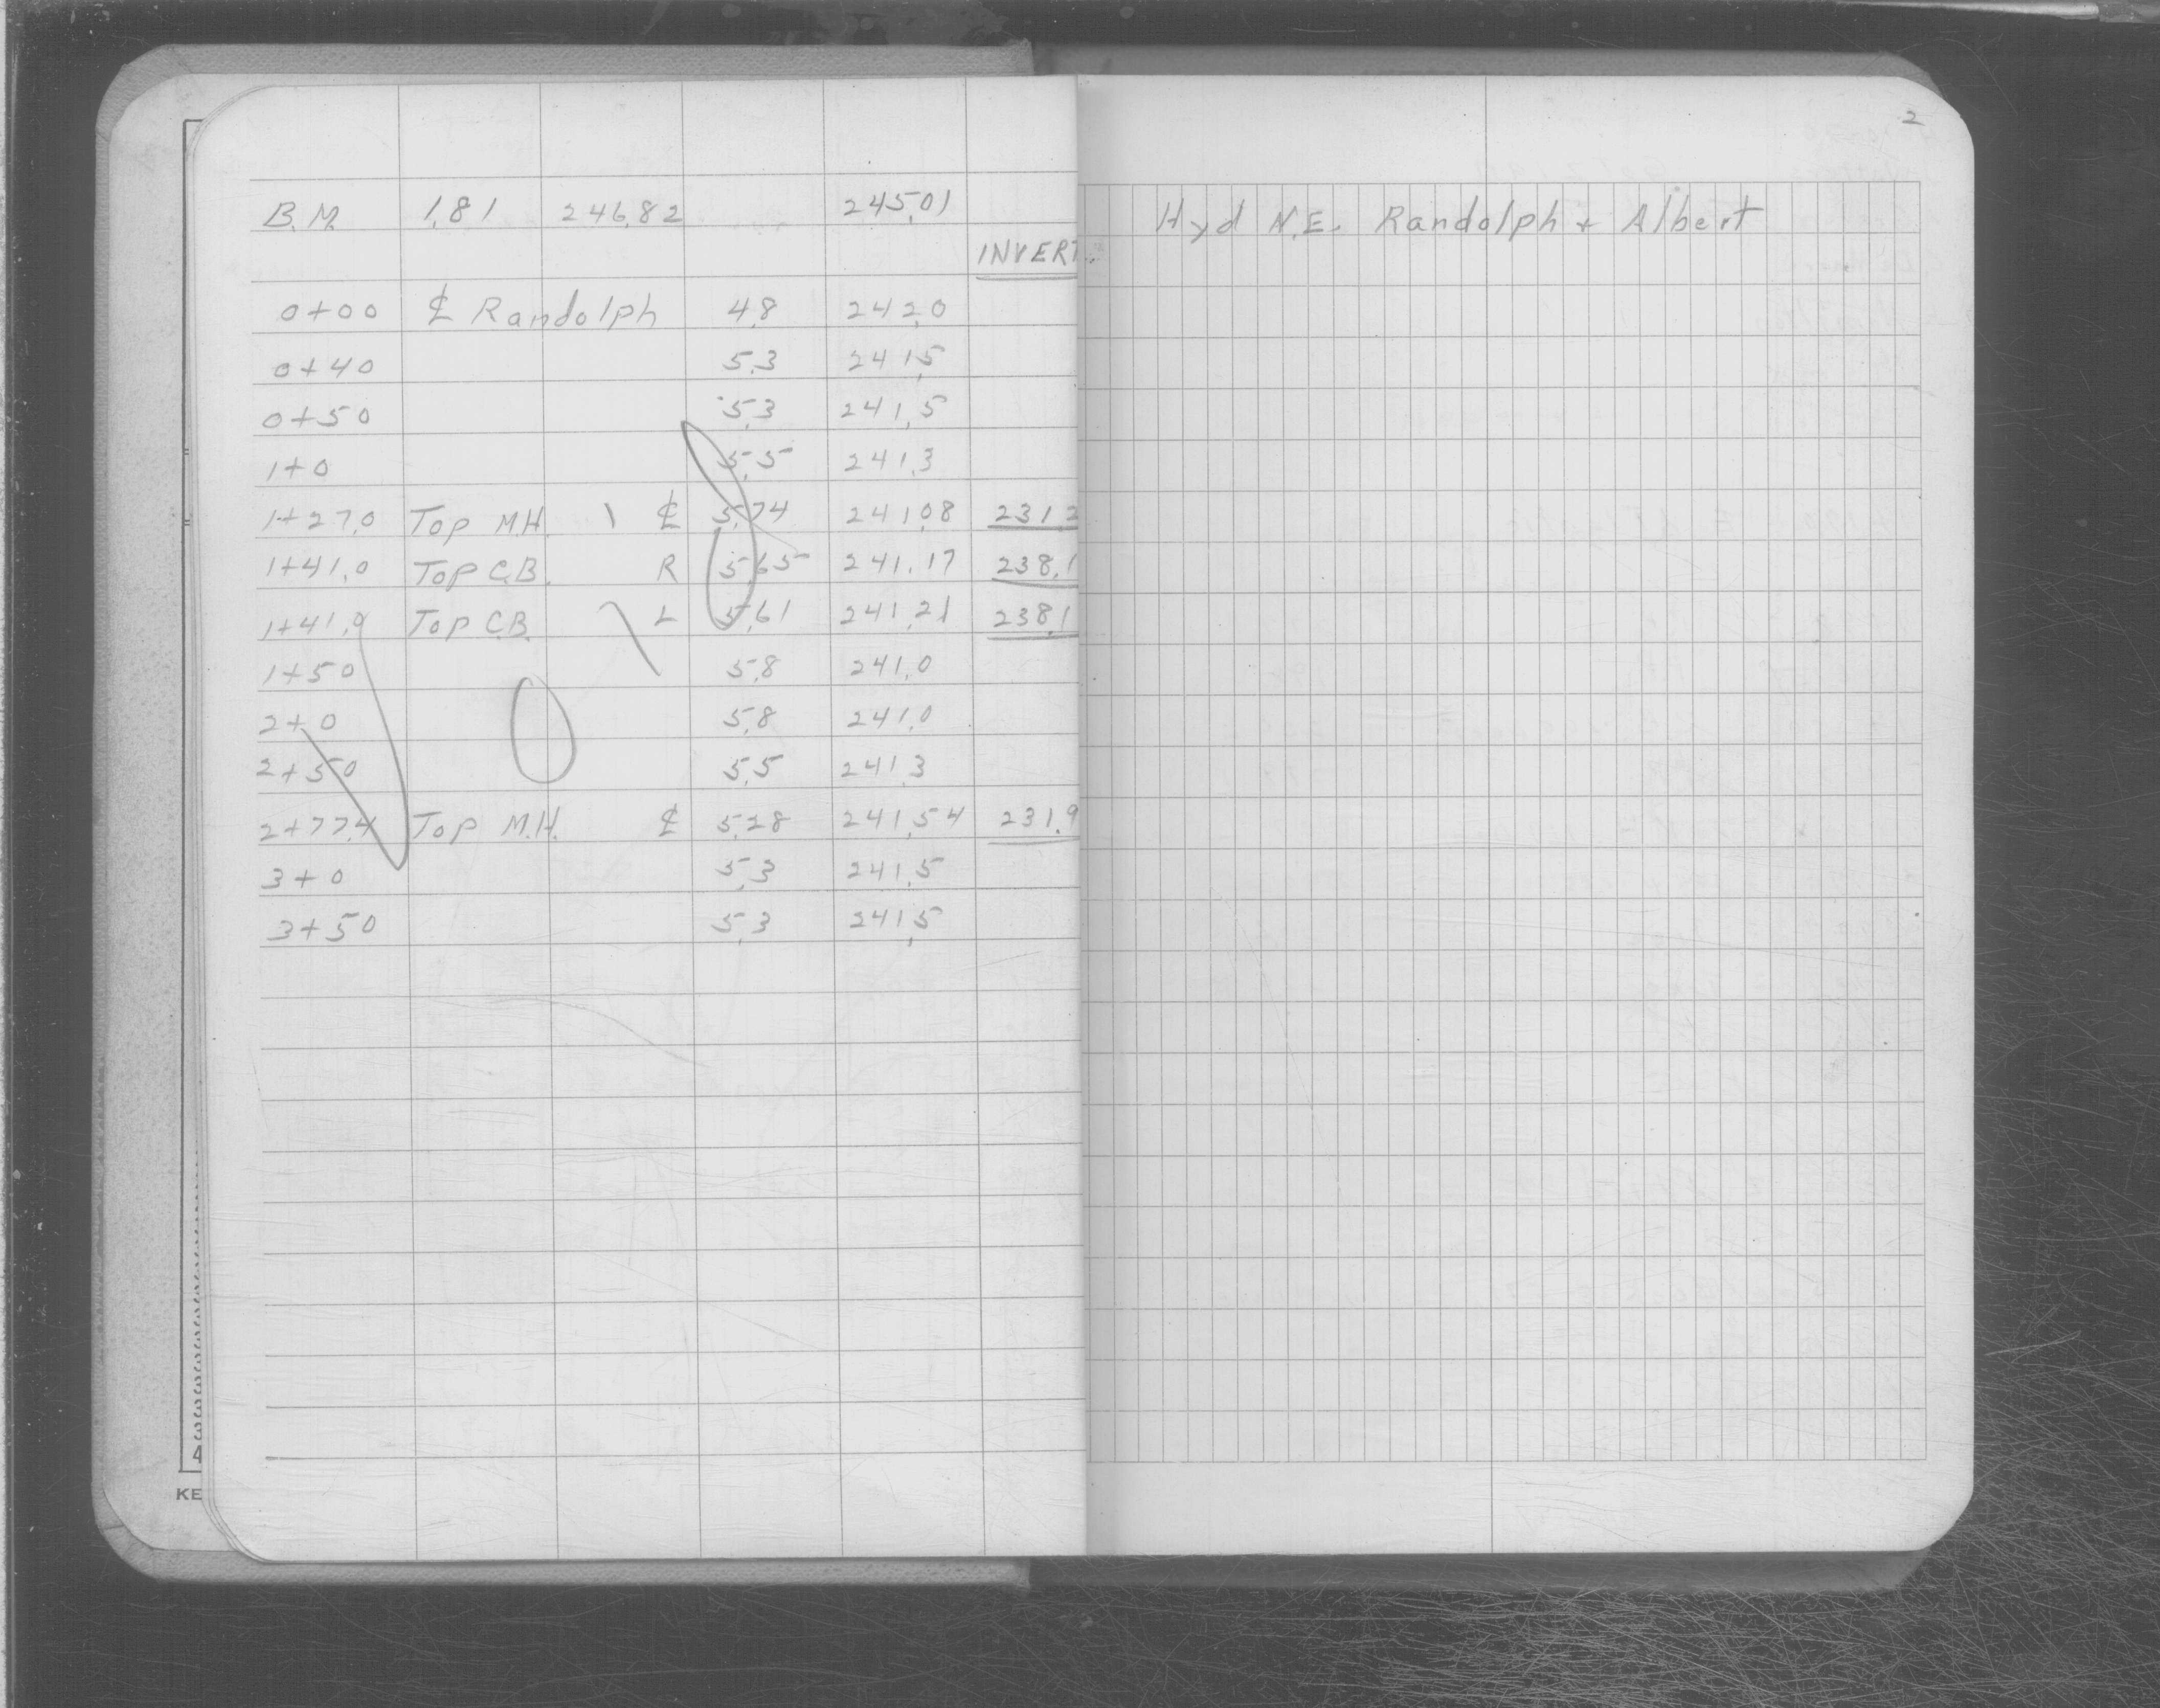 2
B.M. 1.81 246.82 245.01 Hyd N.E. Randolph + Albert
INVERT
0+00 ℄ Randolph 4.8 242.0
0+40 5.3 241.5
0+50 5.3 241.5
1+0 5.5 241.3
1+27.0 Top M.H. ℄ 5.74 241.08 231.2
1+41.0 Top C.B. R 5.65 241.17 238.1
1+41.0 Top C.B. L 5.61 241.21 238.1
1+50 5.8 241.0
2+0 5.8 241.0
2+50 5.5 241.3
2+77.4 Top M.H. ℄ 5.28 241.54 231.9
3+0 5.3 241.5
3+50 5.3 241.5
KE